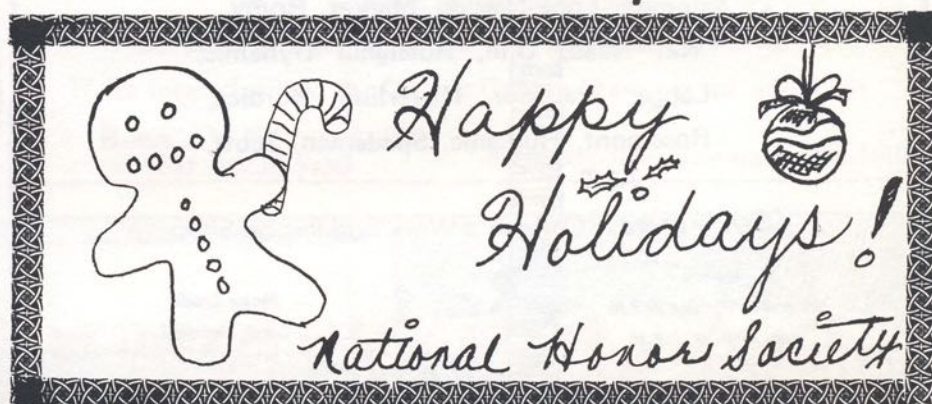 Happy
Holidays!
National Honor Society